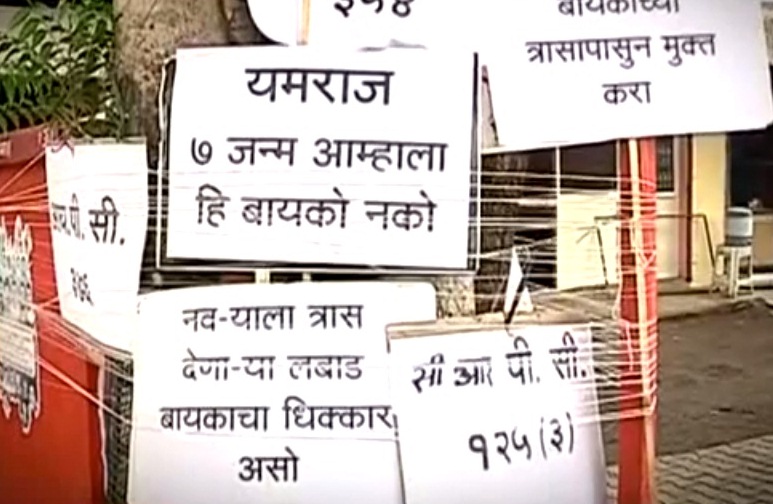 ३५४
बायकांच्या
त्रासापासुन मुक्त
करा
यमराज
७ जन्म आम्हाला
हि बायको नको
पी. सी.
नव-याला त्रास
देणा-या लबाड
बायकाचा धिक्कार
असो
सी आर पी. सी.
१२५ (३)